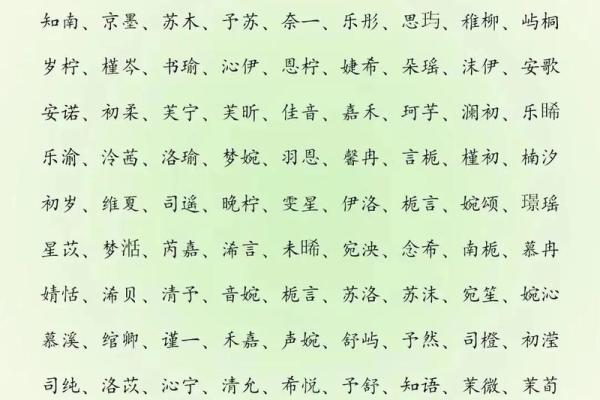 知南、京墨、苏木、予苏、奈一、乐彤、思玙、稚柳、屿桐
岁柠、槿岑、书瑜、沁伊、恩柠、婕希、朵瑶、沫伊、安歌
安诺、初柔、芙宁、芙昕、佳音、嘉禾、珂芋、澜初、乐睎
乐渝、泠茜、洛瑜、梦婉、羽恩、馨冉、言栀、槿初、楠汐
初岁、维夏、司遥、晚柠、雯星、伊洛、栀言、婉颂、璟瑶
星苡、梦湉、芮嘉、浠言、未晞、宛泱、念希、南栀、慕冉
婧恬、浠贝、清予、音婉、栀言、苏洛、苏沫、宛笙、婉沁
慕溪、绾卿、谨一、禾嘉、声婉、舒屿、予然、司橙、初滢
司纯、洛苡、沁宁、清允、希悦、予舒、知语、茉微、茉荀